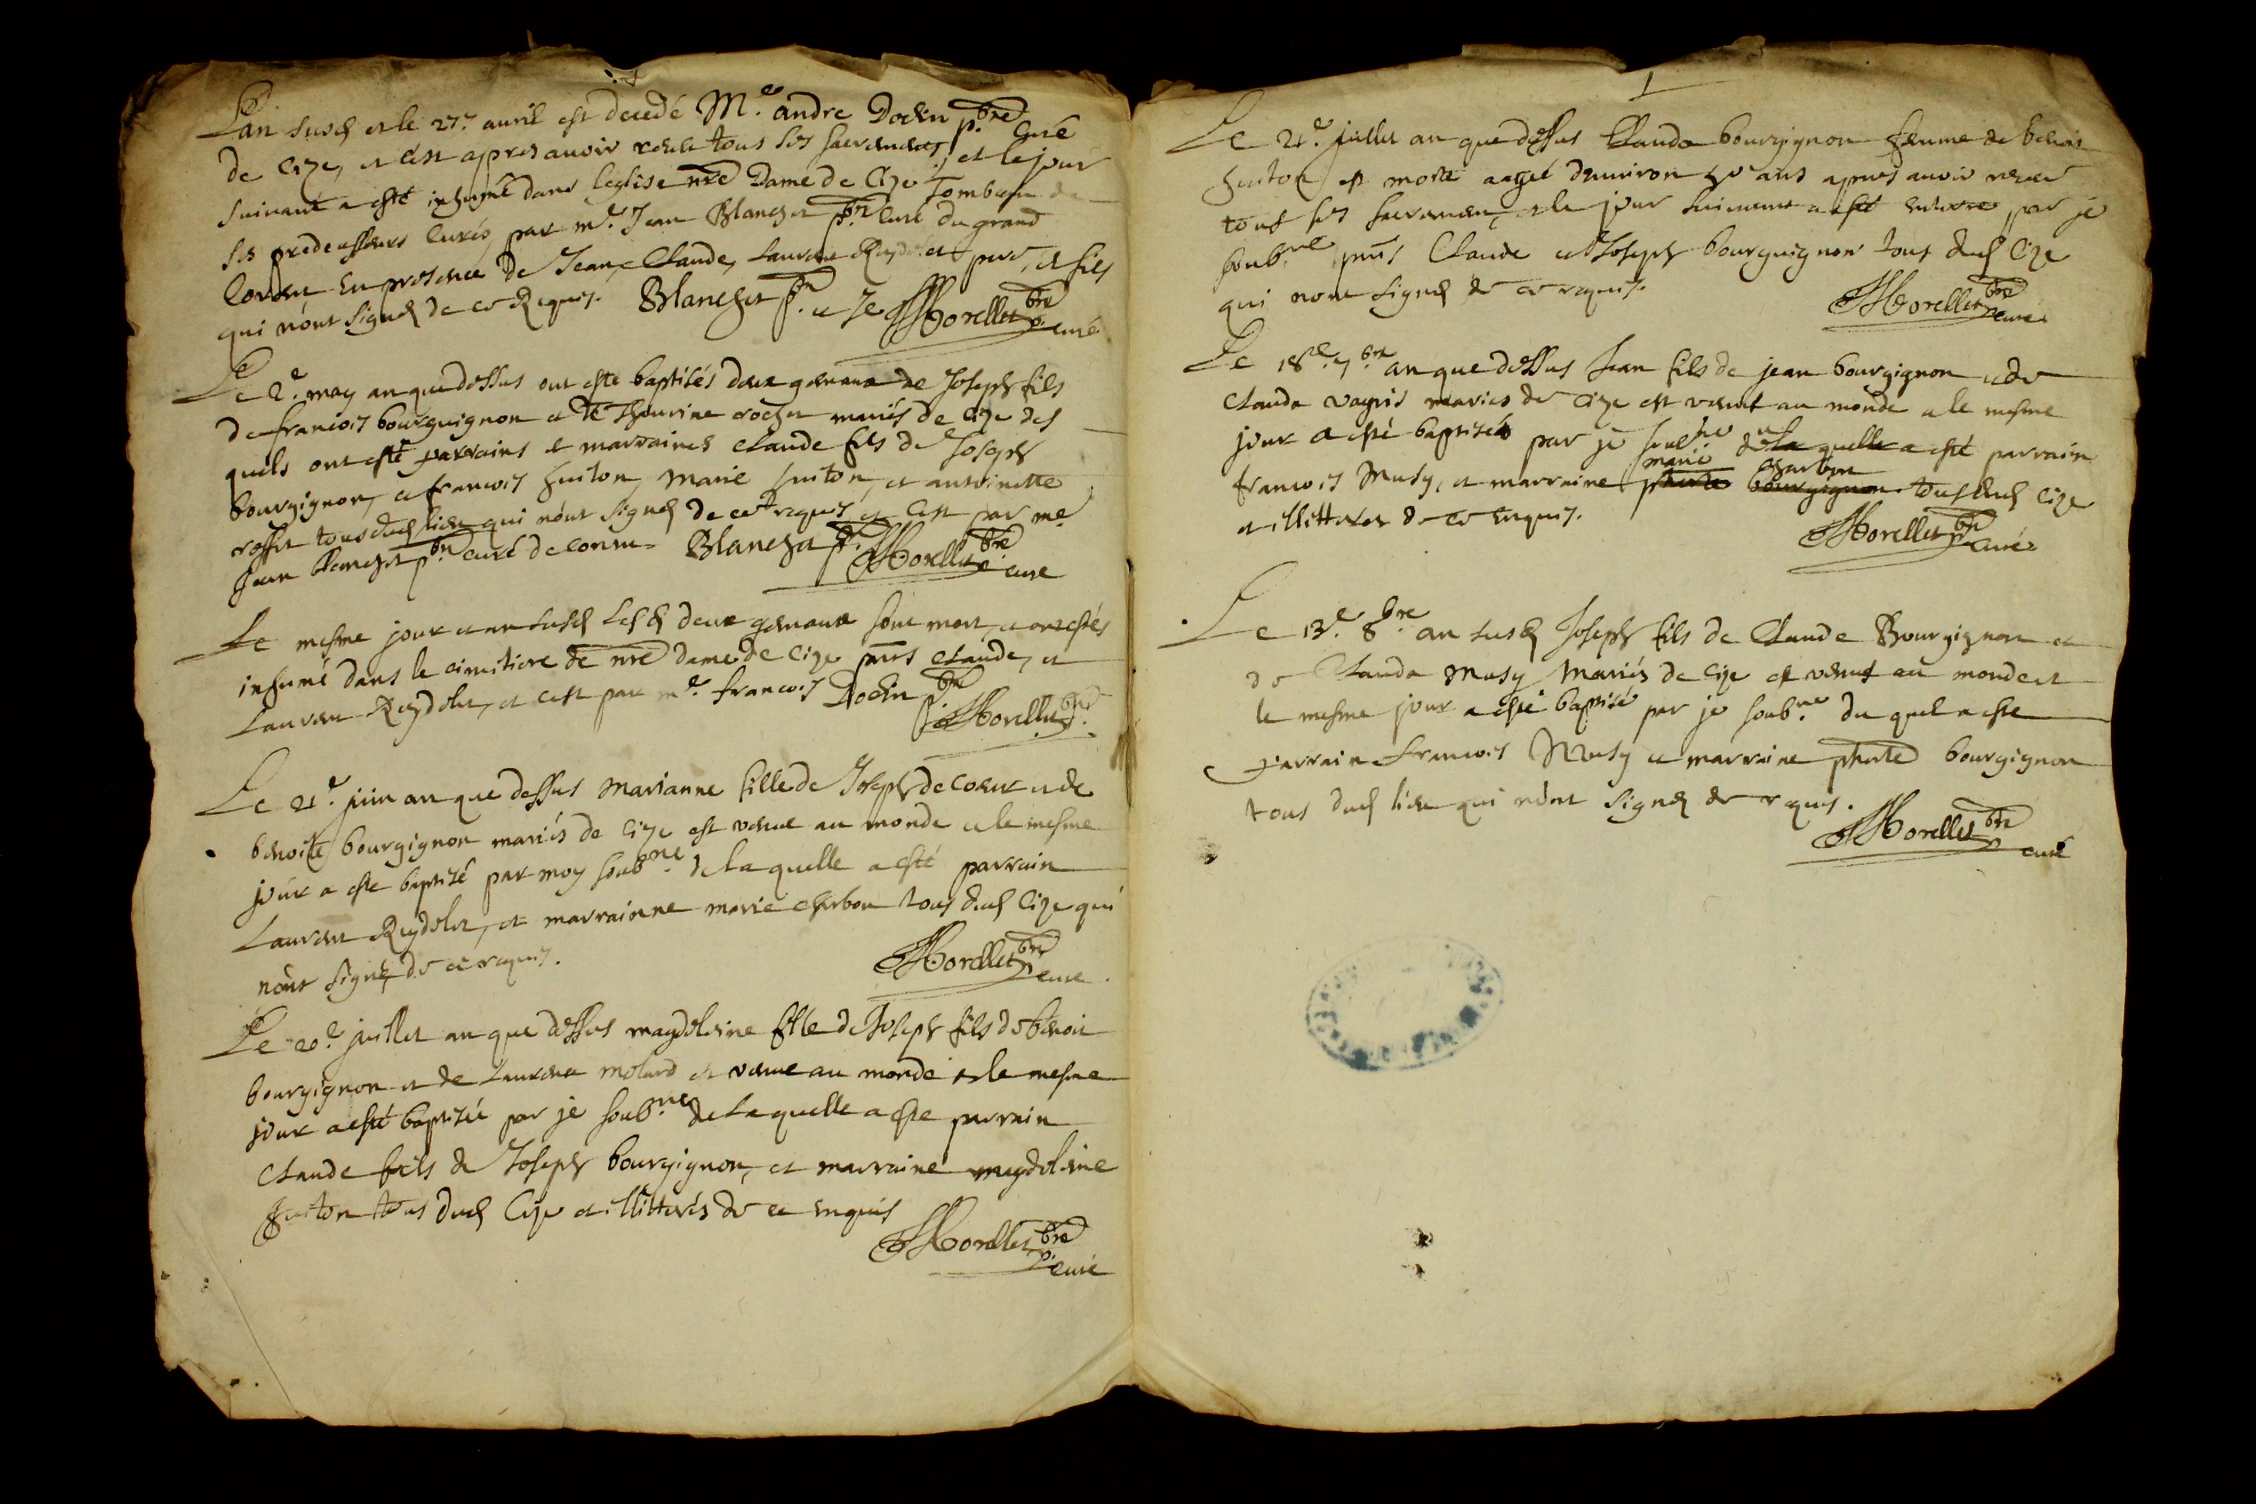 L'an susd et le 27e. avril est decedé Me. andre Dochin pbre curé
de Cize, et cest apres avoir receu tous ses sacrements, et le jour
suivant a esté inhumé dans leglise nre Dame de Cize Tombeau de
ses predecesseurs curés, par me. Jean Blanchet pbr. curé du grand
Corent en presence de Jean, Claude, Laurent Reydelet pere, et fils
qui nont signes de ce requis. Blanchet pbr. et Je Morellet pbre curé
Le 2e. may an que dessus ont esté baptisés deux gemaux de Joseph fils
de francois bourguignon et de Thevenine rochet mariés de Cize des
quels ont esté parrains et marraines claude fils de Joseph
bourgignon, et francois huiton, marie huiton, et antoinette
rosset tous dud lieu qui nont signes de ce requis et cest par me
Jean blanchet pbr. curé de Corent Blanchet p. Morellet pbre curé
Le mesme jour et an susd Lesd deux gemaux sont mort, et ont estés
inhumé dans le cimitiere de nre dame de Cize pnts claude, et
Laurent Reydelet, et cest par me. francois Dochin pbr. Morellet pbre.
Le 21e. juin an que dessus Marianne fille de Joseph de coeur et de
benoite bourgignon mariés de Cize est venue au monde et le mesme
jour a esté baptisé par moy soubne. de laquelle a esté parrain
Laurent Reydelet, et marrainne marie charbon tous dud Cize qui
nont signe de ce requis. Morellet pbre curé.
Le 20e. juillet an que dessus magdeleine fille de Joseph fils de benoit
bourgignon et de Laurence molard et venue au monde et le mesme
jour a esté baptisée par je soubne. de laquelle a esté parrain
claude fils de Joseph bourgignon, et marraine magdeleine
huiton tous dud Cize et illitterés de ce enquis
Morellet pbre curé
1
Le 21e. juillet an que dessus Clauda bourgignon femme de benoit
huiton est morte aagé denviron ans apres avoir receu
tous ses sacremens, et le jour suivant a esté enterré par je
soubne pnts Claude et Joseph bourguignon tous dud Cize
qui nont signes de ce requis. Morellet pbre curé
Le 18e. 7bre an que dessus Jean fils de jean bourgignon et de
Clauda vagnis mariés de Cize est venut au monde et le mesme
jour a esté baptisé par je soubne de laquelle a esté parrain
francois Musy, et marraine marie charbon pernete bourgignon tous dud Cize
et illitteres de ce enquis. Morellet pbr curé
Le 13e. 8bre an susd Joseph fils de Claude Bourgignon et
de Clauda Musy Mariés de Cize est venut au monde et
le mesme jour a esté baptisé par je soubne du quel a esté
parrain francois Musy et marraine bourgignon
tous dud lieu qui nont signes de requis. Morellet pbre
curé